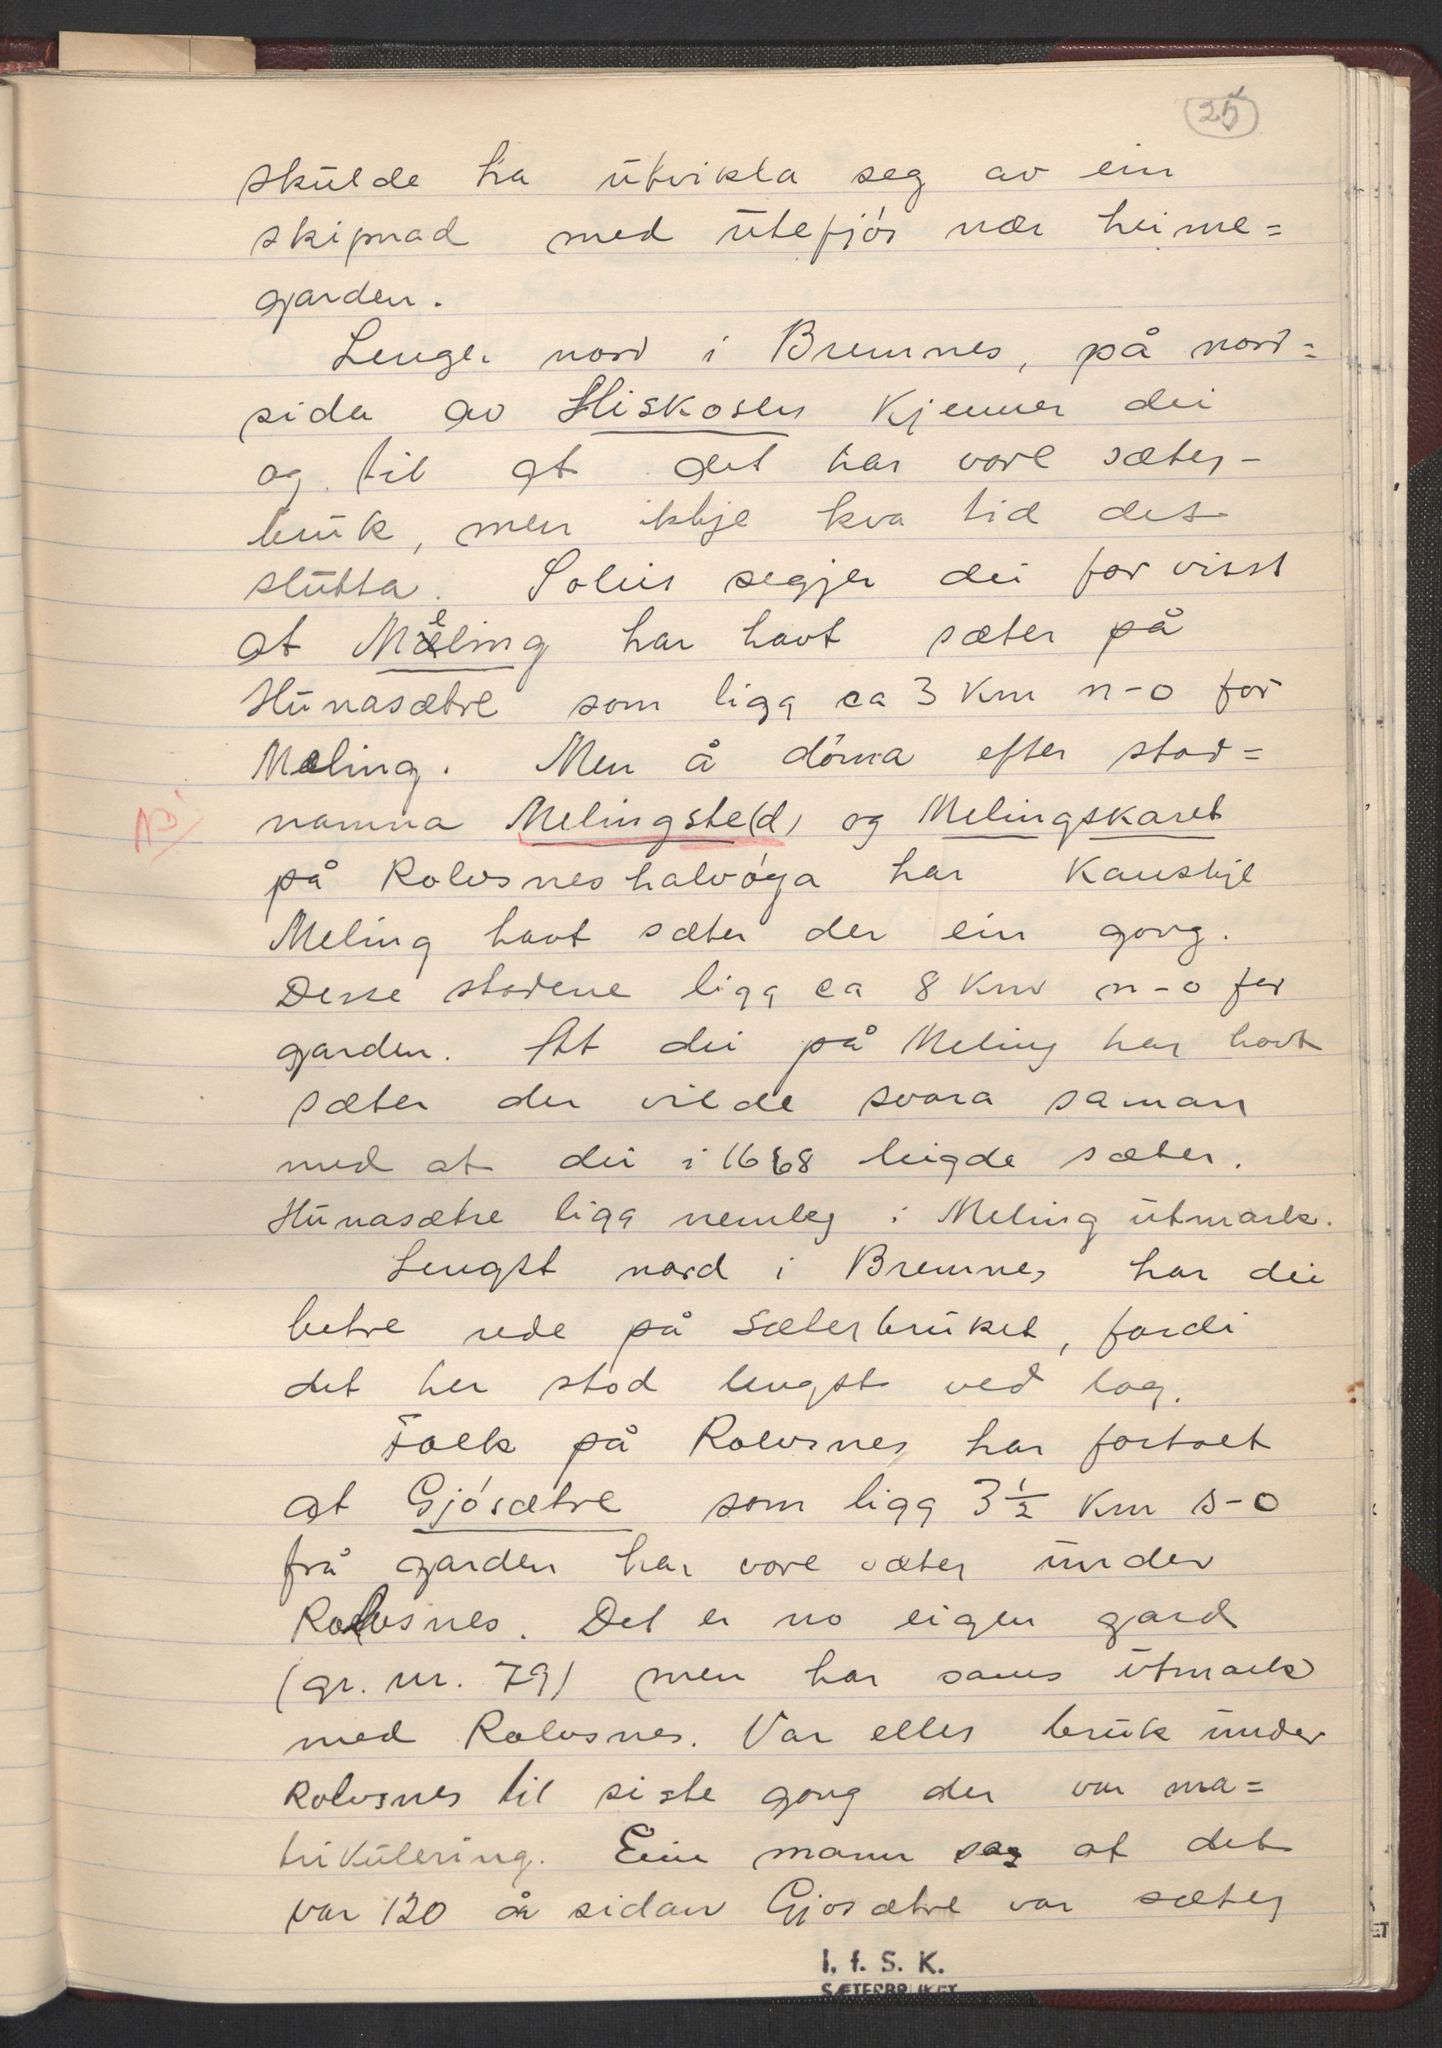 25
skulde ha utvikla seg av ein
skipnad med utefjós nær heime=
garden.
Lenger nord i Bremnes, på nord=
sida av Hiskosen kjenner dei
og til at det har vore sæter-
bruk, men ikkje kva tid det
slutta. Soleis segjer dei for visst
at Meling har havt sæter på
Hunasætre som ligg ca 3 km n-o for
Meling. Men å dóma efter stad=
namna Melingste(d) og Melingskaret
på Rolvsneshalvóya har kanskje
Meling havt sæter der ein gong.
Desse stadene ligg ca 8 km n-o for
garden. At dei på Meling har havt
sæter der vilde svara saman
med at dei i 1668 leigde sæter.
Hunasætre ligg nemleg i Meling utmark.
Lengst nord i Bremnes har dei
betre rede på sæterbruket, fordi
det her stod lengst ved lag.
Folk på Rolvsnes har fortalt
at Gjósætre som ligg 3½ km s-o
frå garden har vore sæter under
Rolvsnes. Det er no eigen gard
(gr. nr. 79) men har sams utmark
med Rolvsnes. Var elles bruk under
Rolvsnes til siste gong der var ma=
trikulering. Ein mann sag at det
var 120 år sidan Gjosætre var sæter
I. f. S. K.
SÆTERBRUKET